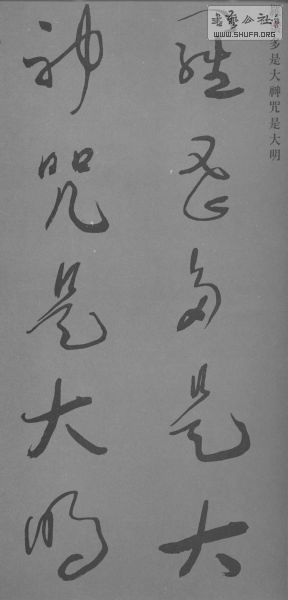 书艺公社
www.SHUFA.ORG
多是大神咒是大明
羅蜜多是大
神咒是大明